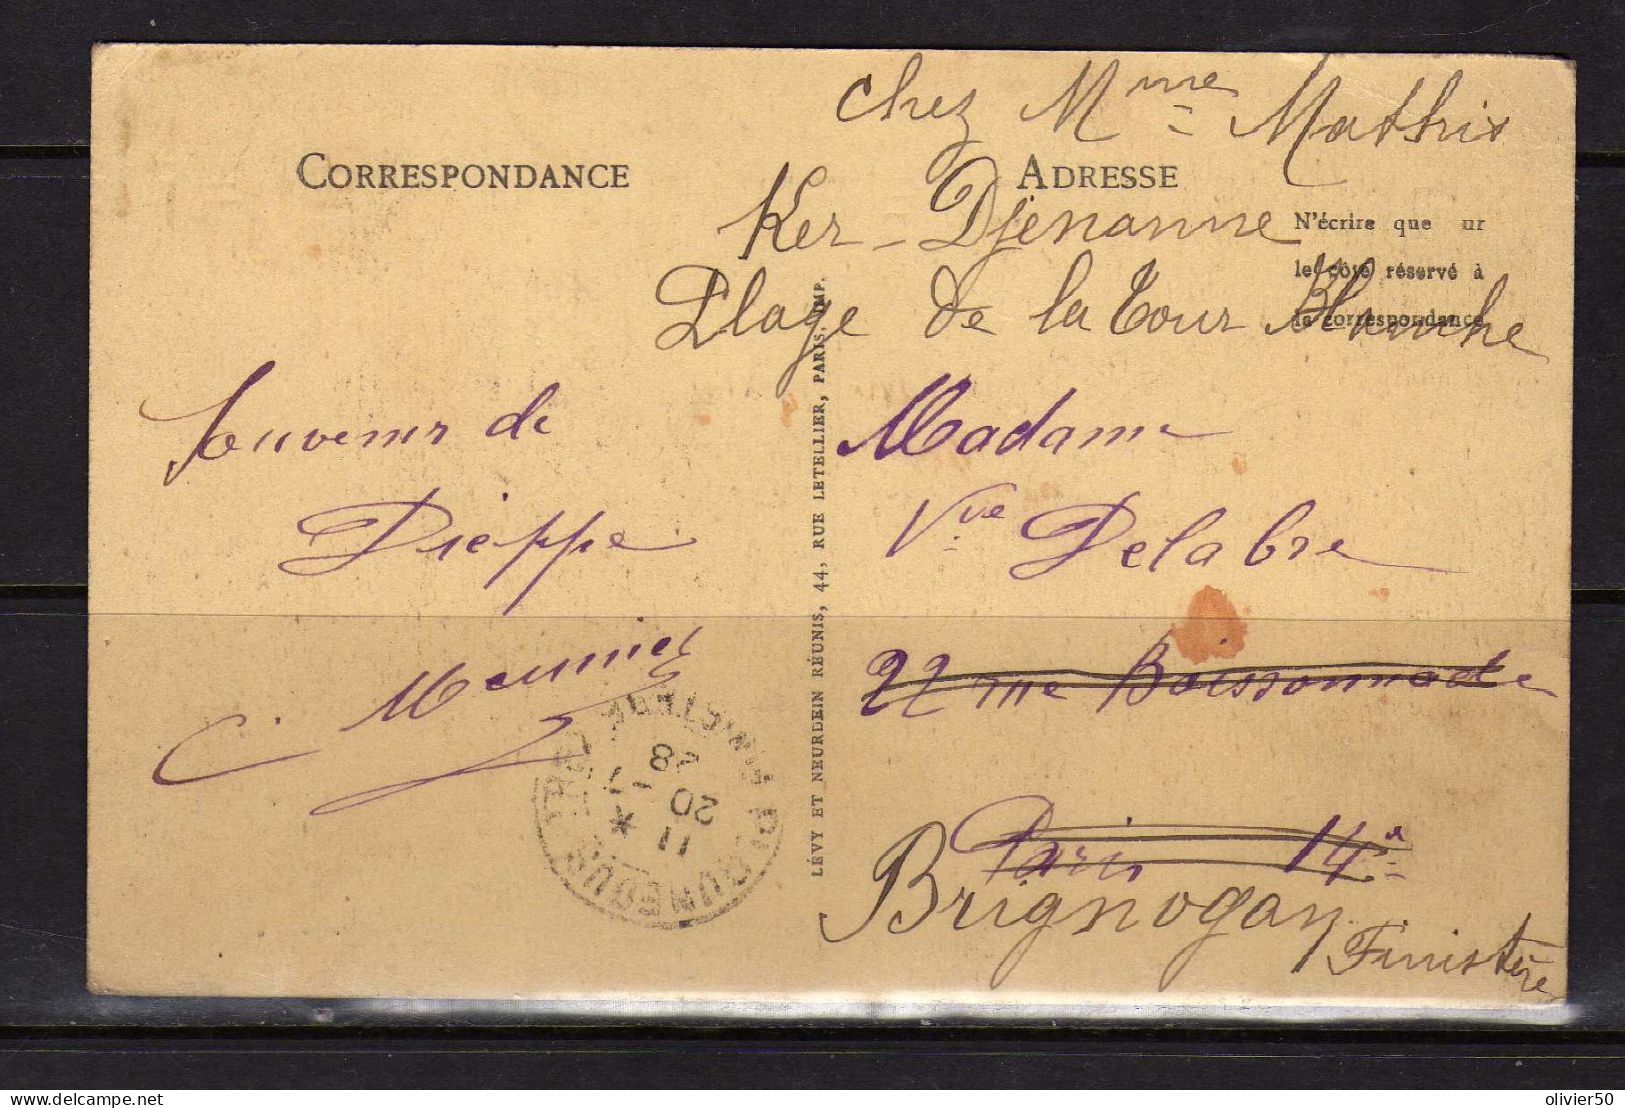 chez Mme Mathis
CORRESPONDANCE
ADRESSE
Ker-Djenanne
N'écrire que ur
le côté réservé à
la correspondance
Plage de la Tour Blanche
Souvenir de
Dieppe
C. Meunier
Madame
Vve Delabre
22 rue Boissonnade
Paris 14e
Brignogan
Finistère
LÉVY ET NEURDEIN RÉUNIS, 44, RUE LETELLIER, PARIS. IMP.
FINISTERE
11 *
20 - 7
28
delcampe.net
olivier50